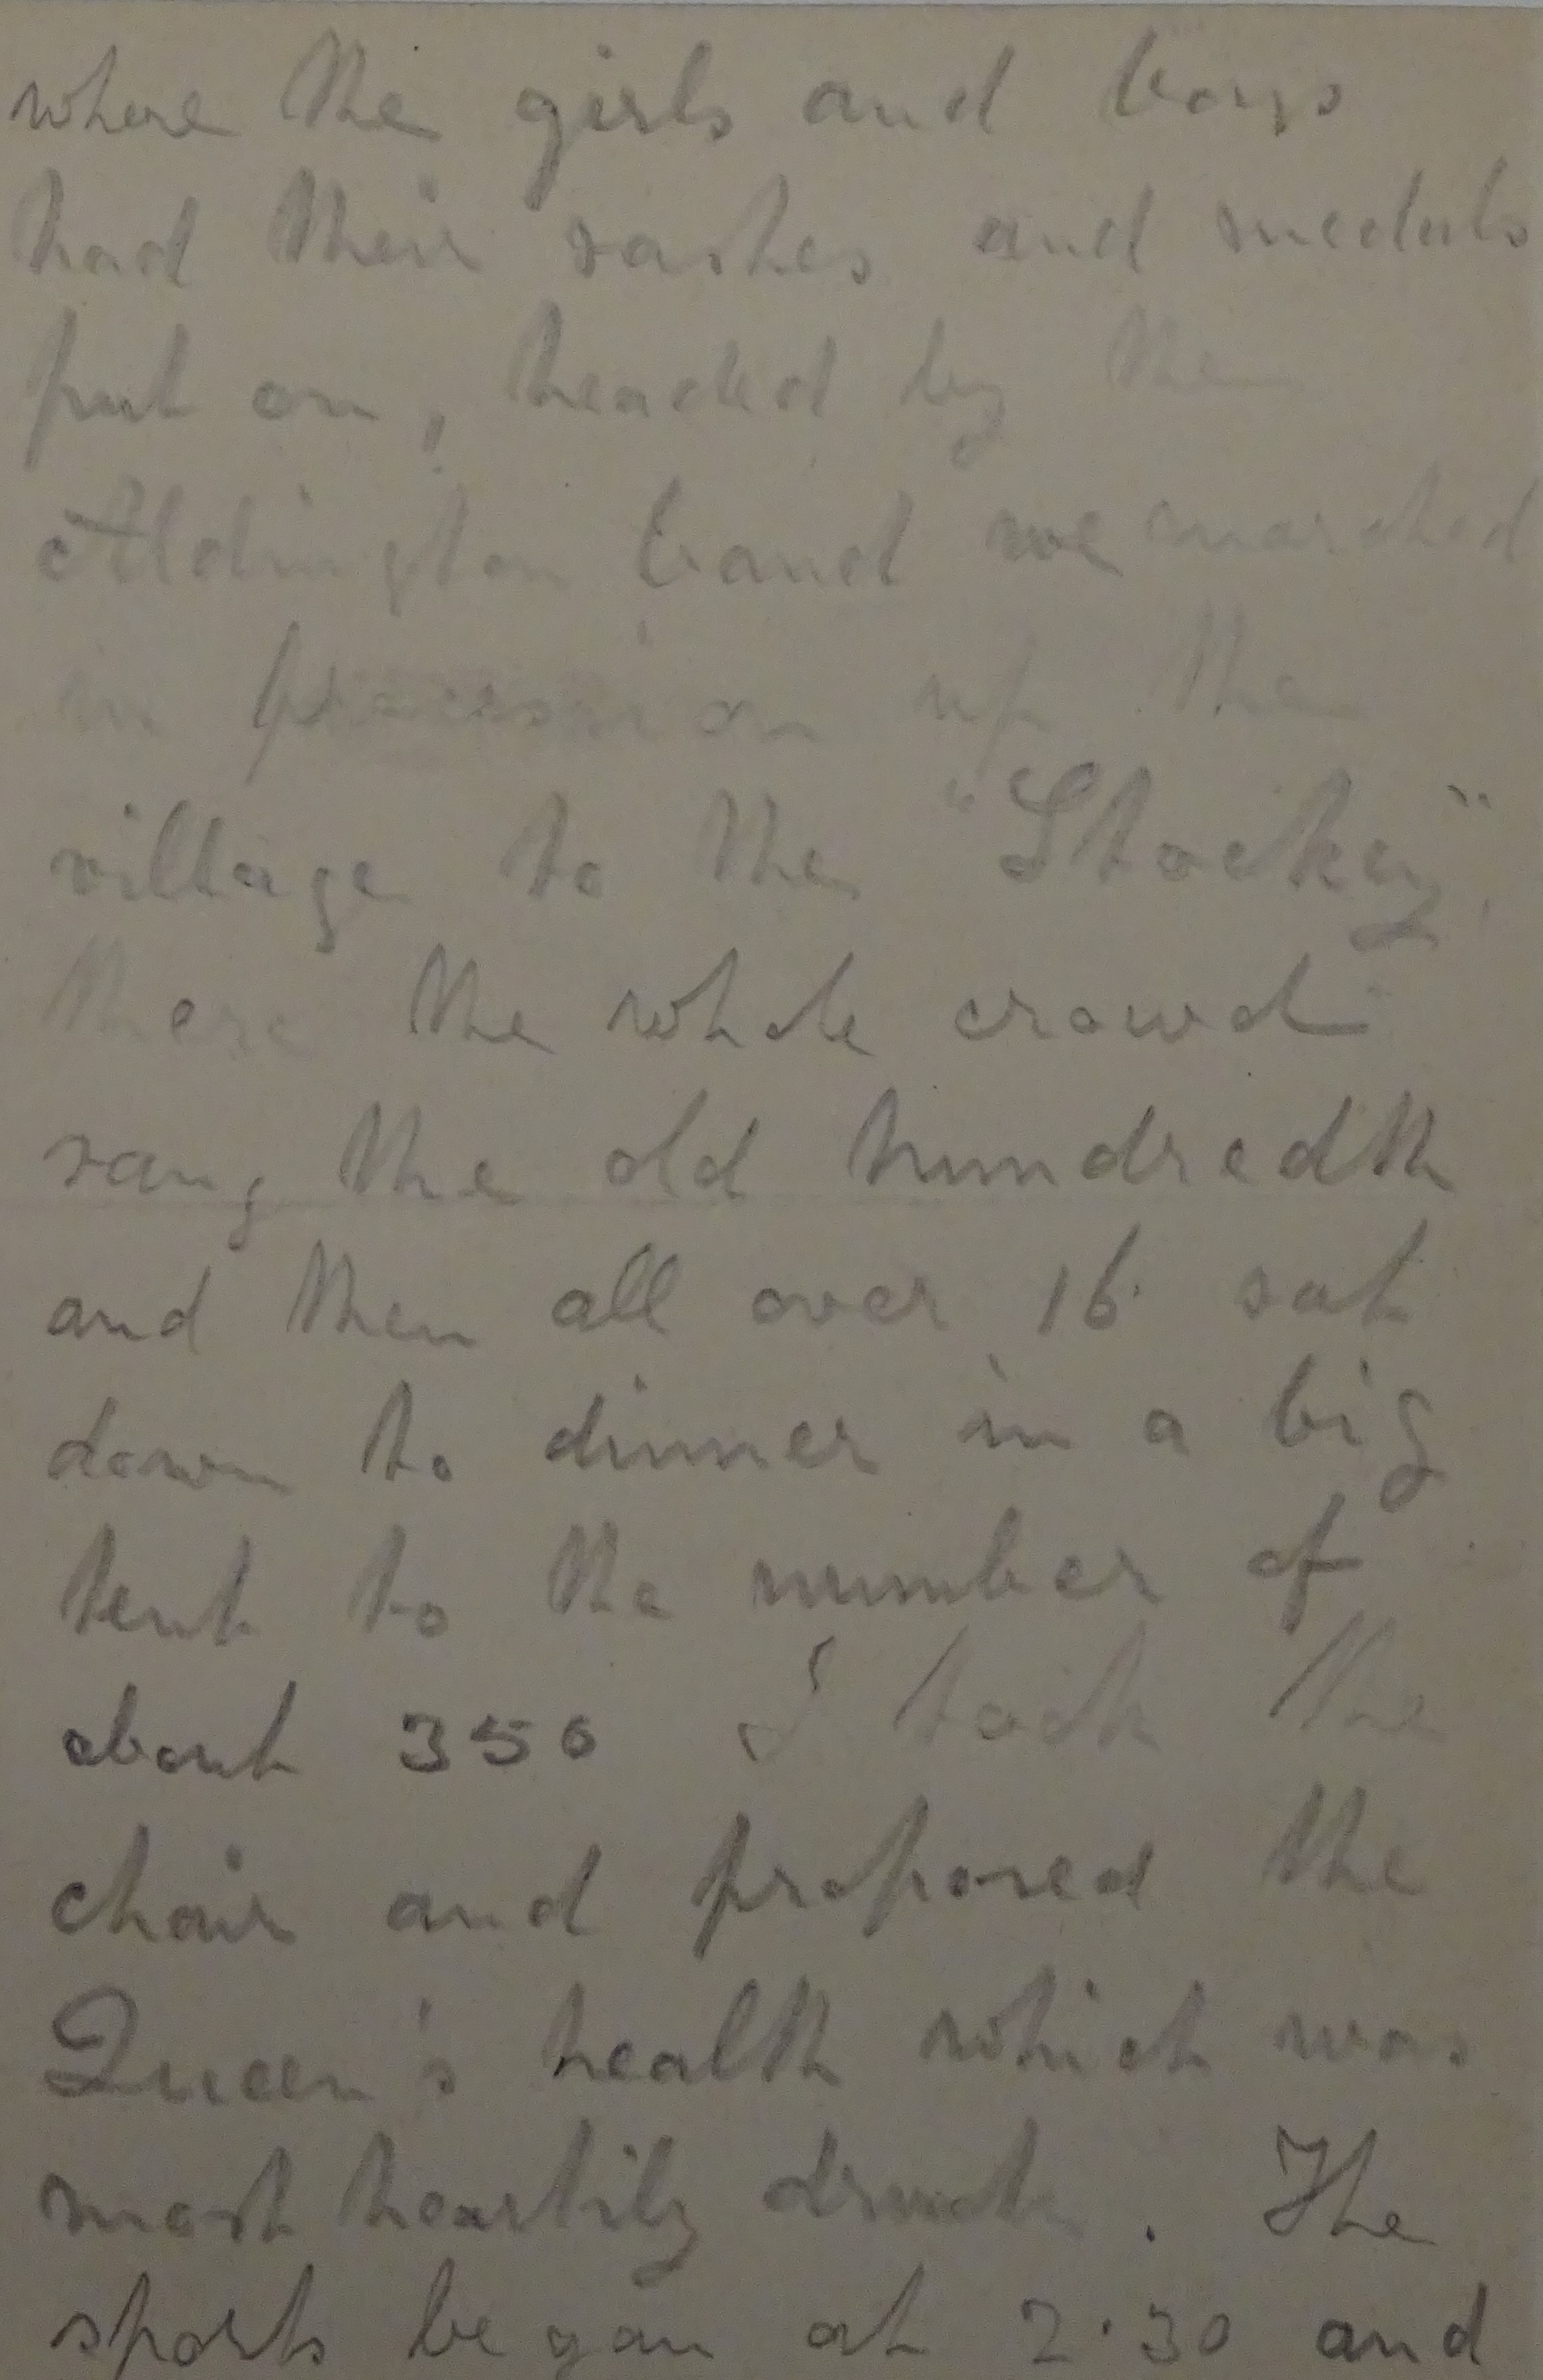 where the girls and boys
had their sashes and medals
put on, headed by the
Aldington band we marched
in procession up the
village to the "Stockey",
there the whole crowd
sang the old hundredth
and then all over 16 sat
down to dinner in a big
tent to the number of
about 350 I took the
chair and proposed the
Queen's health which was
most heartily drunk. The
sports began at 2.30 and